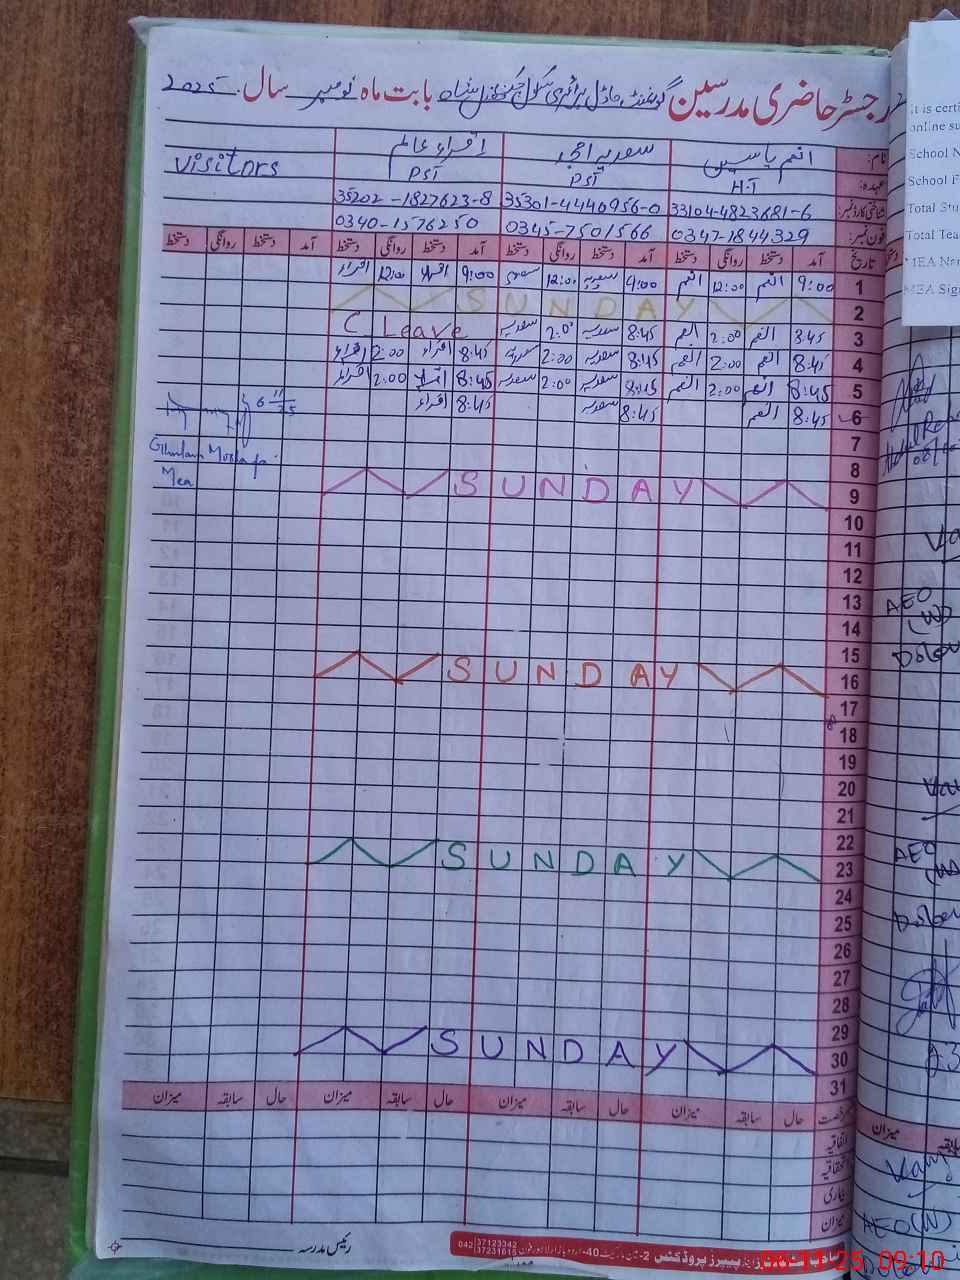 رجسٹر حاضری مدرسین گورنمنٹ ماڈل پرائمری سکول بابت ماہ نومبر سال 2025
نام: انعم یاسین سعدیہ امجد اقراء عالم Visitors
عہدہ: H.T PST PST
شناختی کارڈ نمبر: 33104-4823681-6 35301-4440956-0 35202-1827623-8
فون نمبر: 0347-1844329 0345-7501566 0340-1576250
تاریخ آمد دستخط روانگی دستخط آمد دستخط روانگی دستخط آمد دستخط روانگی دستخط آمد دستخط روانگی دستخط
1 9:00 انعم 12:00 انعم 9:00 سعدیہ 12:00 سعدیہ 9:00 اقراء 12:00 اقراء
2 SUNDAY
3 8:45 انعم 2:00 انعم 8:45 سعدیہ 2:00 سعدیہ C Leave
4 8:45 انعم 2:00 انعم 8:45 سعدیہ 2:00 سعدیہ 8:45 اقراء 2:00 اقراء
5 8:45 انعم 2:00 انعم 8:45 سعدیہ 2:00 سعدیہ 8:45 اقراء 2:00 اقراء
6 8:45 انعم 8:45 سعدیہ 8:45 اقراء 6 11/25
7 Ghulam Mustafa
8 Mea
9 SUNDAY
10
11
12
13
14
15
16 SUNDAY
17
18
19
20
21
22
23 SUNDAY
24
25
26
27
28
29
30 SUNDAY
31
رخصت حال سابقہ میزان حال سابقہ میزان حال سابقہ میزان حال سابقہ میزان
اتفاقیہ
استحقاقیہ
بیماری
میزان
رئیس مدرسہ
042 37123342
37231615
It is certi
online su
School N
School F
Total Stu
Total Tea
MEA Nam
MEA Sign
AEO
(W)
AEO
AEO(W)
میزان
06-11-25 09:10